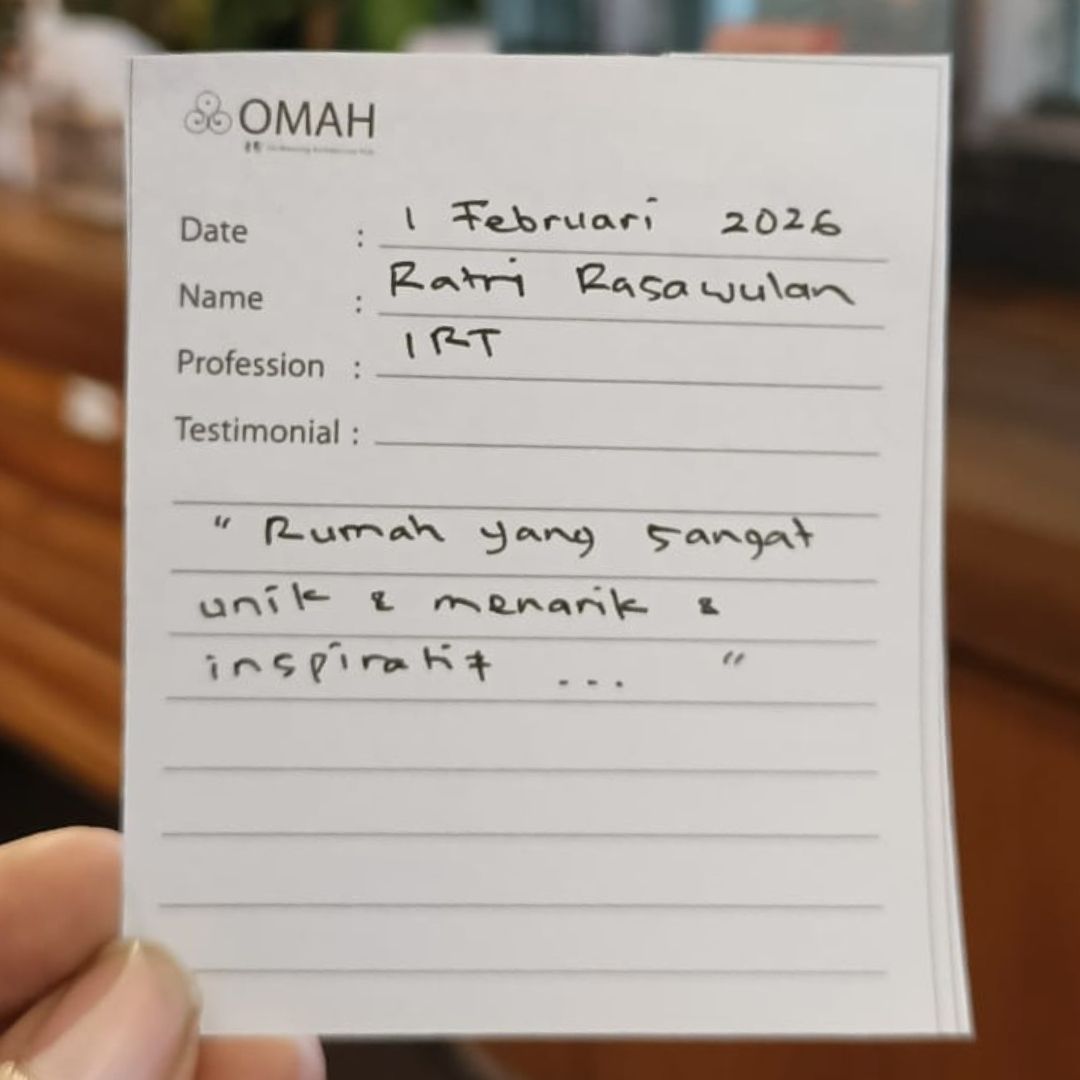 OMAH
Date : 1 Februari 2026
Name : Ratri Rasawulan
Profession : IRT
Testimonial :
" Rumah yang sangat
unik & menarik &
inspiratif ... "